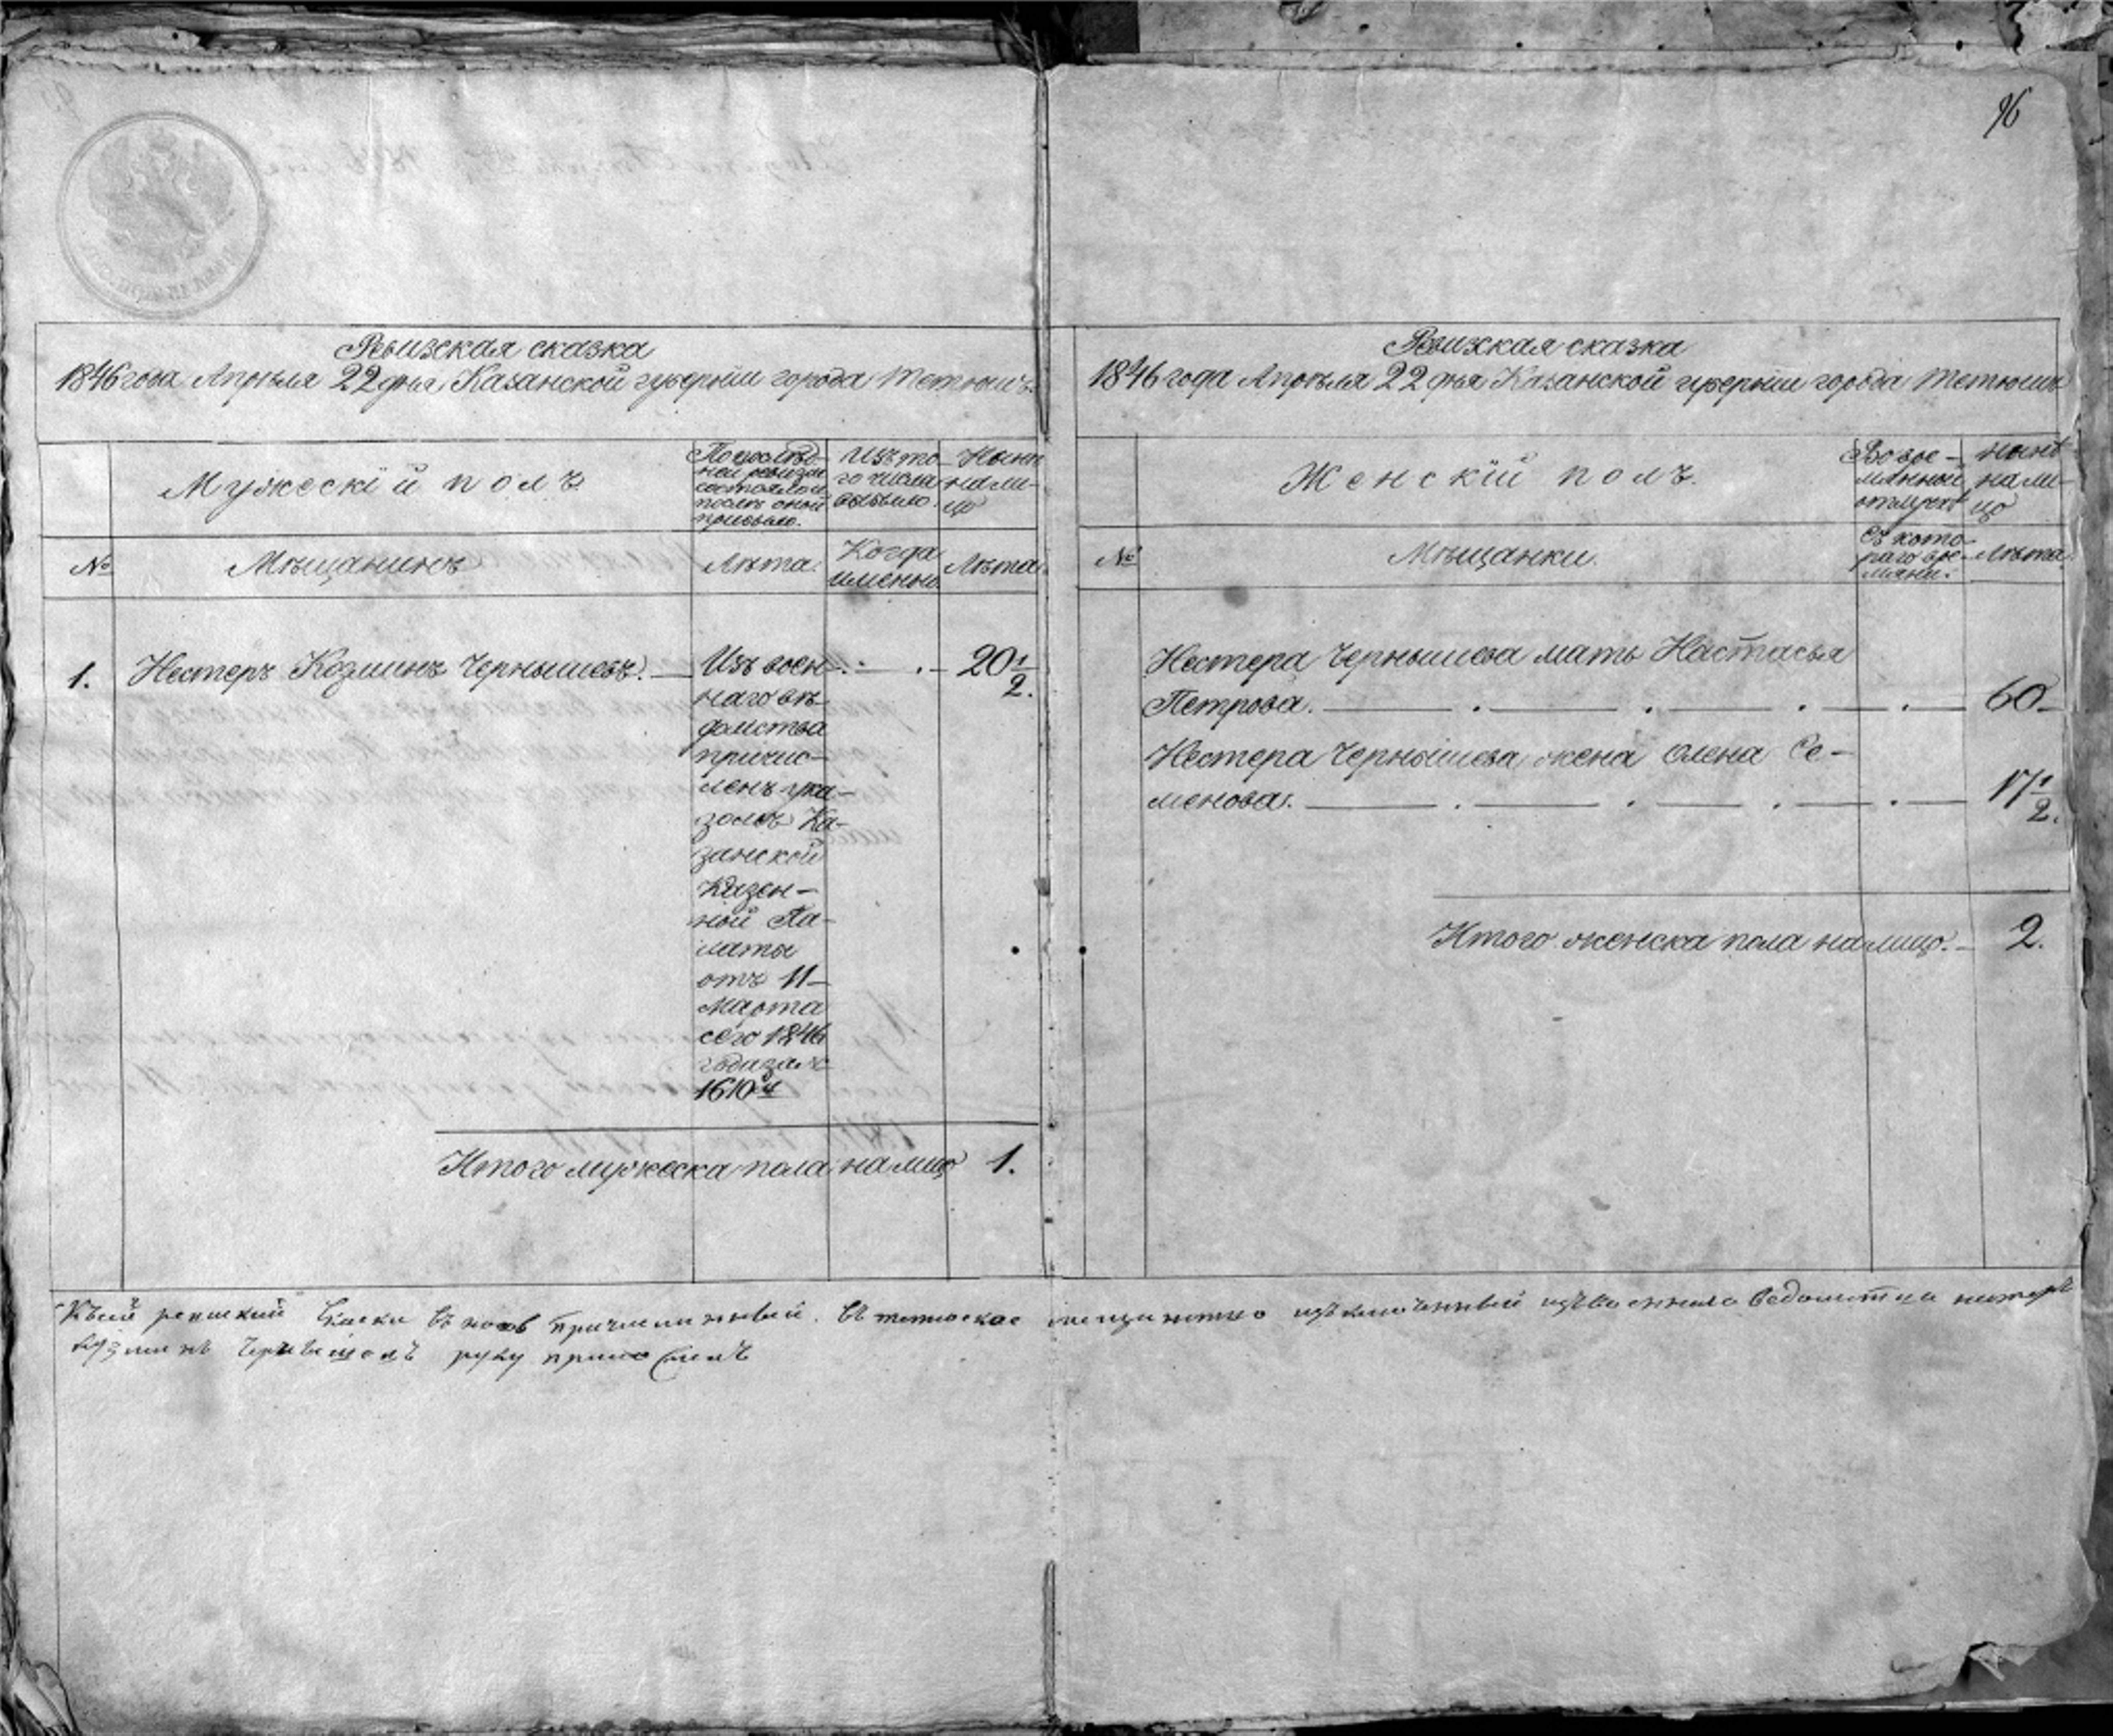 96
Ревизская сказка
1846 года Апрѣля 22 дня Казанской губерніи города Тетюшъ.
Мужескій полъ
По послѣд-
ней ревизіи
состояло и
послѣ оной
прибыло.
Изъ то-
го числа
выбыло.
Нынѣ
на ли-
цо
№
Мѣщанинъ
Лѣта.
Когда
именно.
Лѣта.
1.
Нестеръ Козминъ Чернышевъ.
Изъ воен-
наго вѣ-
домства
причис-
ленъ ука-
зомъ Ка-
занской
Казен-
ной Па-
латы
отъ 11
Марта
сего 1846
года за №
1610й
20 1/2.
Итого мужеска пола на лицо 1.
Ревизская сказка
1846 года Апрѣля 22 дня Казанской губерніи города Тетюшъ
Женскій полъ.
Во вре-
мянной
отлучкѣ
нынѣ
на ли-
цо
№
Мѣщанки.
Съ кото-
раго вре-
мяни.
Лѣта.
Нестера Чернышева мать Настасья
Петрова. 60
Нестера Чернышева жена Олена Се-
менова. 17 1/2.
Итого женска пола на лицо. 2.
Къ сей причисленный. въ тетюское
руку приложилъ